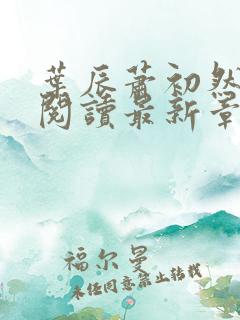 葉辰蕭初然
閱讀最新章
福尔曼
未经同意禁止转载